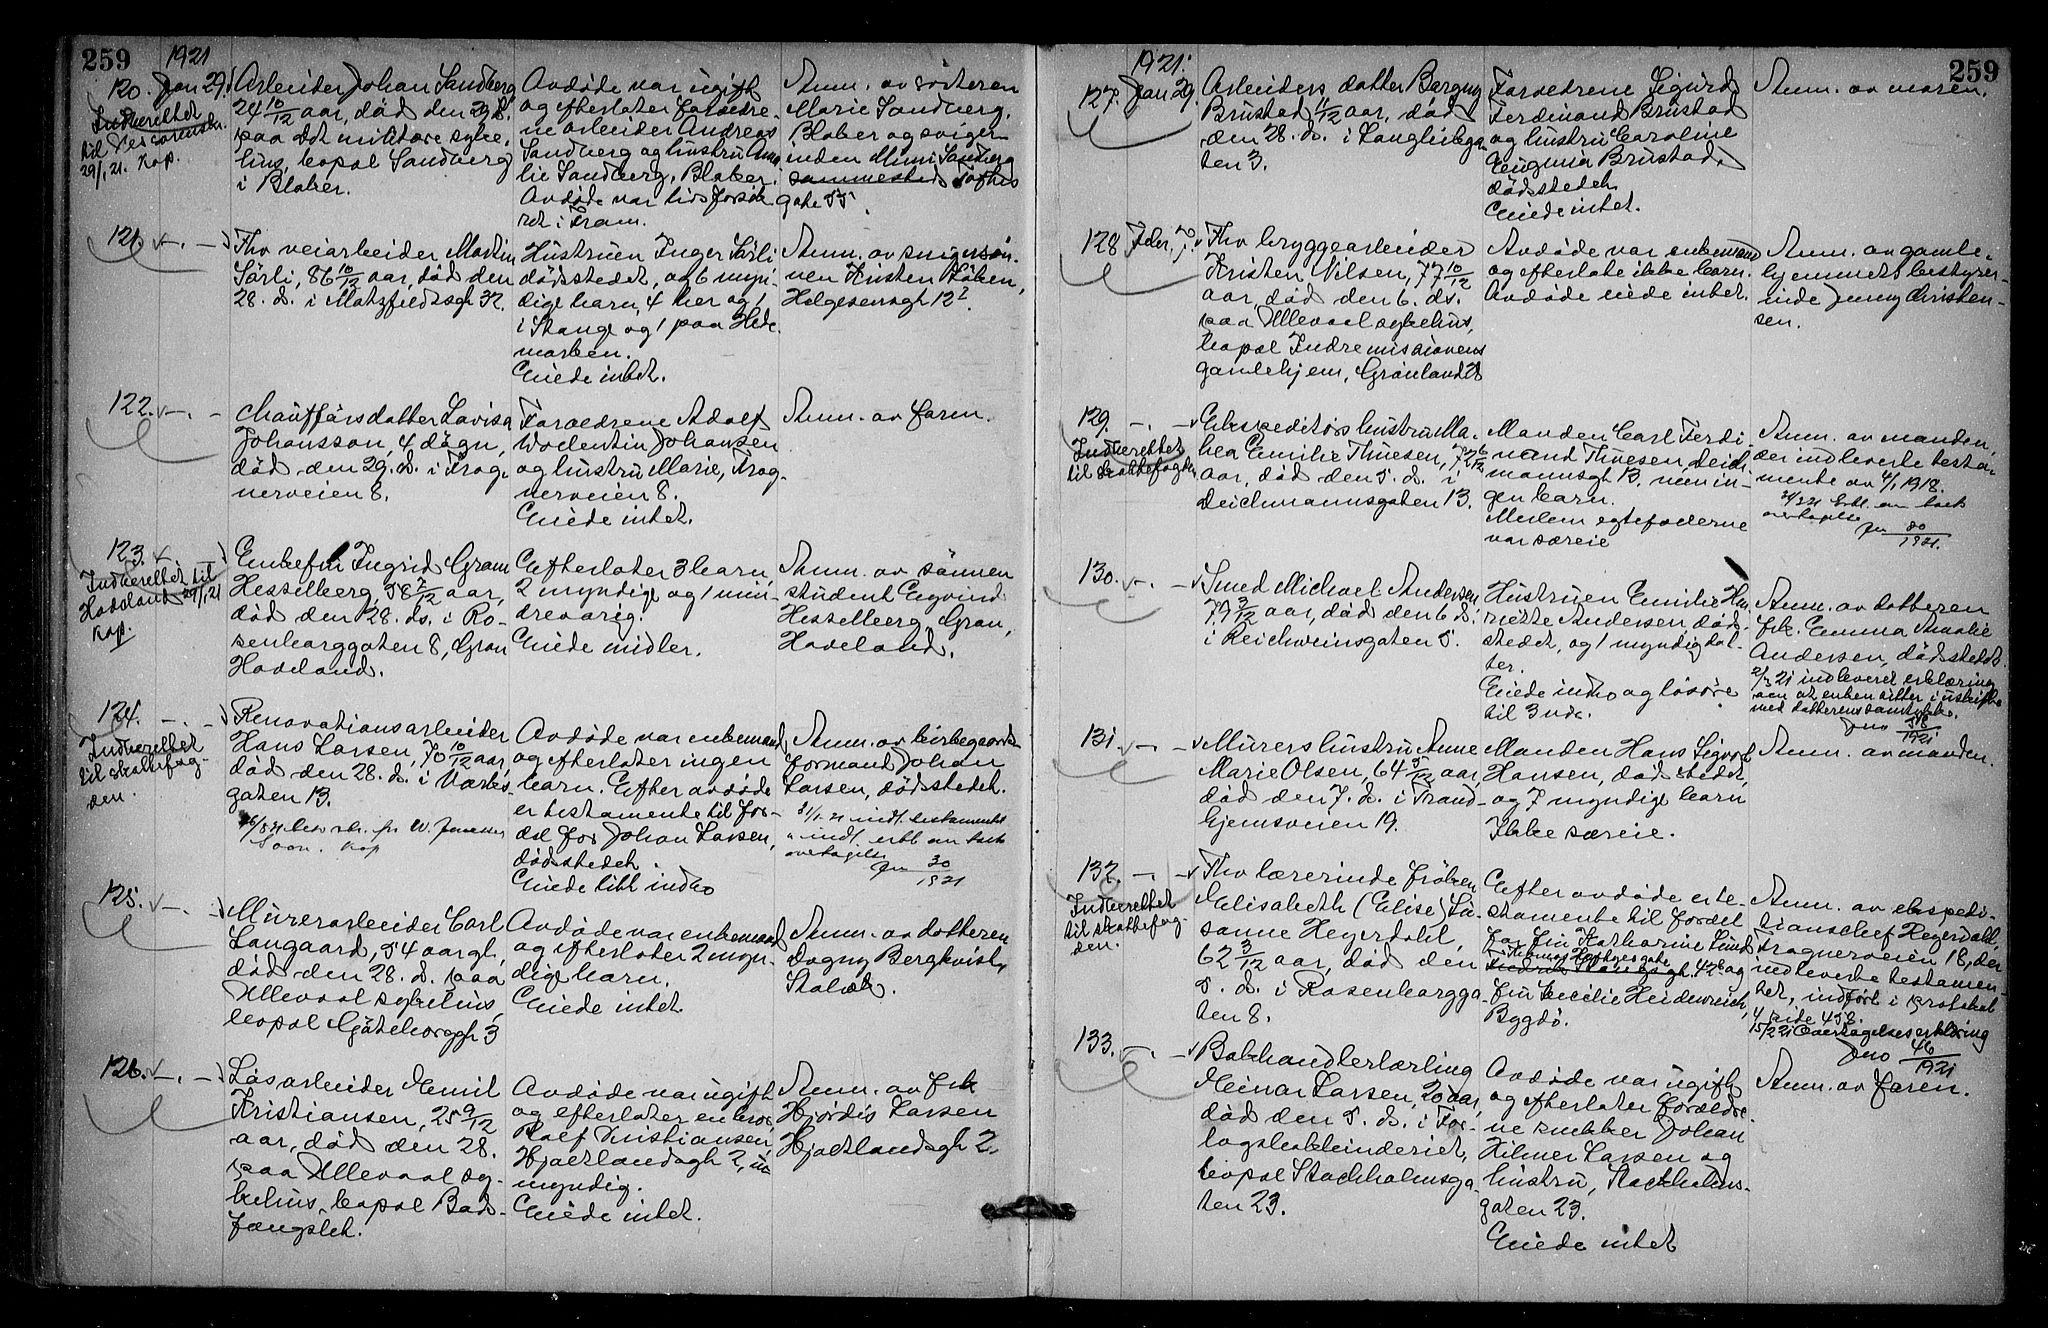 259
1921
120. Jan 29.
Indberettet
til
29/1 21. Kop.
Arbeider Johan Sandberg
24 10/12 aar, död den 29 d.
paa det militære syke-
hus, bopæl Sandberg
i Blaker.
Avdöde var ugift
og efterlater foreldre-
ne arbeider Andreas
Sandberg og hustru Ama
lie Sandberg, Blaker.
Avdöde var livsforsik
ret i Fram.
Anm. av sösteren
Marie Sandberg,
Blaker og sviger-
inden Mimi Sandberg
sammesteds Sofies
gate 55.
121. -
Fhv veiarbeider Martin
Sörli, 86 10/12 aar, död den
28. d. i Matzfeldtsgt 32.
Hustruen Inger Sörli
dödsstedet, og 6 myn-
dige barn, 4 her og 1
i Stange og 1 paa Hede
marken.
Eiede intet.
Anm. av svigersön-
nen Kristen Höben,
Helgesensgt 12
122. -
Chaufförs datter Lovisa
Johansson, 4 dögn,
död den 29. d. i Frog-
nerveien 8.
Foreldrene Adolf
Valentin Johansen
og hustru Marie, Frog-
nerveien 8.
Eiede intet.
Anm. av faren.
123.
Indberettet til
Hadeland 29/1 21
Kop.
Enkefru Ingrid Gram
Hesselberg, 58 2/12 aar,
död den 28. ds. i Ro-
senborggaten 8, Gran
Hadeland.
Efterlater 3 barn,
2 myndige og 1 min-
dreaarig.
Eiede midler.
Anm. av sönnen
student Eyvind
Hesselberg, Gran,
Hadeland.
124. -
Indberettet
til skattefog-
den.
Renovationsarbeider
Hans Larsen, 70 10/12 aar,
död den 28. d. i Vaales
gaten 13.
Avdöde var enkemand
og efterlater ingen
barn. Efter avdöde
er testamente til for-
del for Johan Larsen,
dödsstedet.
Eiede litt indbo
Anm. av
formand Johan
Larsen, dödsstedet.
31/1 21 indl. testamentet
indl. erkl. om boets
overtagelse
Jno 30/1921
125. -
Murerarbeider Carl
Langaard, 54 aar gl.,
död den 28. d. paa
Ullevaal sykehus,
bopæl Göteborggt 3
Avdöde var enkemand
og efterlater 2 myn-
dige barn.
Eiede intet.
Anm. av datteren
Dagny Bergkvist,
126. -
Lösarbeider Emil
Kristiansen, 25 9/12
aar, död den 28.
paa Ullevaal sy-
kehus, bopæl Bods-
fængslet.
Avdöde var ugift
og efterlater en bror
Rolf Kristiansen,
Hjaltlandsgt 2, u
myndig.
Eiede intet.
Anm. av frk
Hjördis Larsen
Hjaltlandsgt 2.
259
1921.
127. Jan 29.
Arbeiders datter Borgny
Brustad 11/12 aar, död
den 28. ds. i Langleikga-
ten 3.
Foreldrene Sigurd
Ferdinand Brustad
og hustru Caroline
Eugenia Brustad,
dödsstedet.
Eiede intet.
Anm. av moren.
128 Febr. 7.
Fhv bryggearbeider
Kristen Nilsen, 77 10/12
aar, död den 6. ds.
paa Ullevaal sykehus,
bopæl Indremissionens
gamlehjem, Grönland 28
Avdöde var enkemand
og efterlot ikke barn.
Avdöde eiede intet.
Anm. av gamle-
hjemmets bestyrer-
inde Jenny Christen-
sen.
129. -
Indberettet
til skattefogden
Ekspeditörs hustru Ma-
hea Emilie Thuesen, 72 6/12
aar, död den 5. d. i
Deichmannsgaten 13.
Manden Carl Ferdi-
nand Thuesen, Deich-
mannsgt 13, men in-
gen barn.
Mellem egtefællerne
var særeie
Anm. av manden,
der indleverte testa-
mente av 4/1 1918.
erkl. om boets
overtagelse
Jno 80/1921.
130. -
Smed Michael Andersen
79 3/12 aar, död den 6 d.
i Reichweinsgaten 5.
Hustruen Emilie Hen
riette Andersen död-
stedet, og 1 myndig dat-
ter.
Eiede indbo og lösöre
til 3 nde.
Anm. av datteren
frk. Emma Amalie
Andersen, dödsstedet.
2/3 21 indleveret erklæring
om at enken sitter i uskifte
med datterens samtykke.
Jno 548/1921
131. -
Murers hustru Anne
Marie Olsen, 64 5/12 aar,
död den 7. d. i Trond-
hjemsveien 19.
Manden Hans Sigvart
Hansen, dödsstedet,
og 7 myndige barn
Ikke særeie.
Anm. av manden.
132. -
Indberettet
til skattefog-
den.
Fhv lærerinde fröken
Elisabeth (Elise) Su-
sanne Heyerdahl,
62 3/12 aar, död den
5. d. i Rosenborgga
ten 8.
Efter avdöde er te-
stamente til fordel
for fru Katharina Lund
gate
42 og
fru Cecilie Heidenreich,
Bygdö.
Anm. av ekspedi-
tionschef Heyerdahl,
Frognerveien 18, der
indleverte testamen-
tet, indfört i protokol
4 side 458.
15/2 21 Overtagelseserklæring
Jno 46/1921
133. -
Bokhandlerlærling
Einar Larsen, 20 aar,
död den 5. d. i For-
lagsbokbinderiet,
bopæl Stockholmsga-
ten 23.
Avdöde var ugift
og efterlater foreldre-
ne snekker Johan
Hilmer Larsen og
hustru, Stockholms-
gaten 23.
Eiede intet
Anm. av faren.